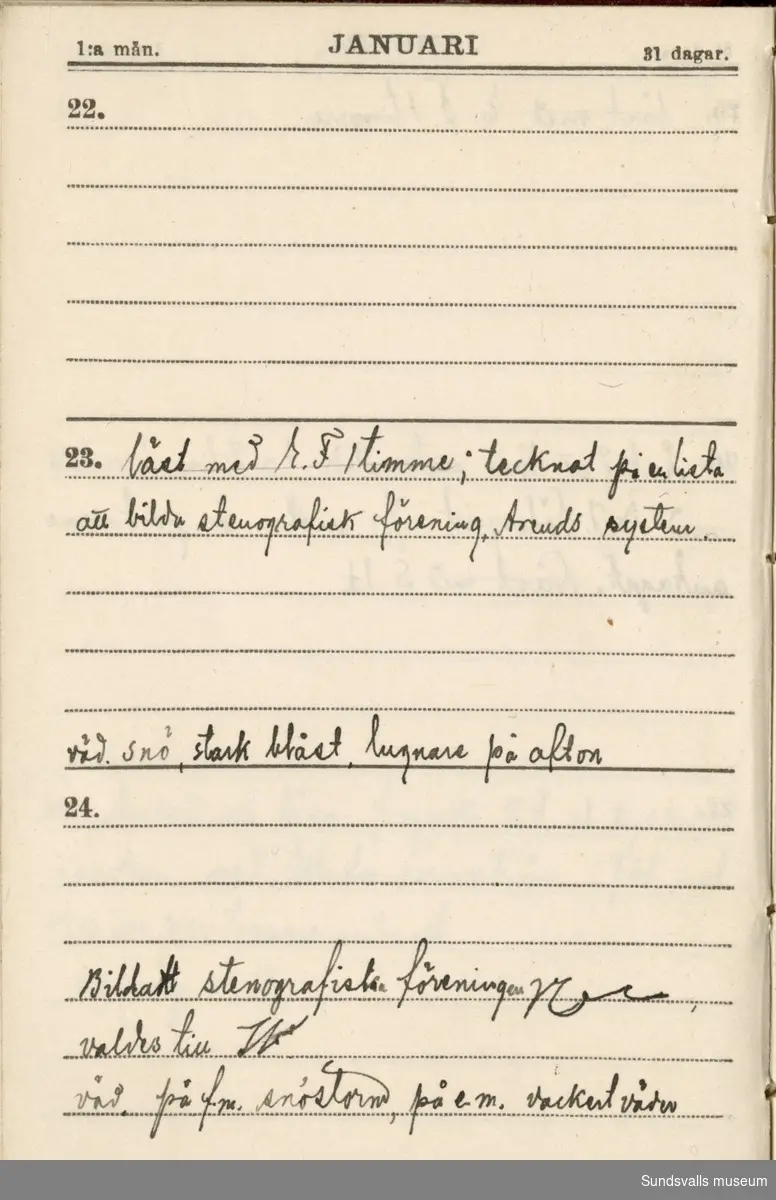 1:a mån. JANUARI 31 dagar.
22.
23. läst med E. F 1 timme; tecknat på en lista
att bilda stenografisk förening, Arends system.
väd. snö, stark blåst, lugnare på afton
24.
Bildatt stenografiska föreningen
valdes till
väd. på f.m. snöstorm, på e.m. vackert väder
Sundsvalls museum